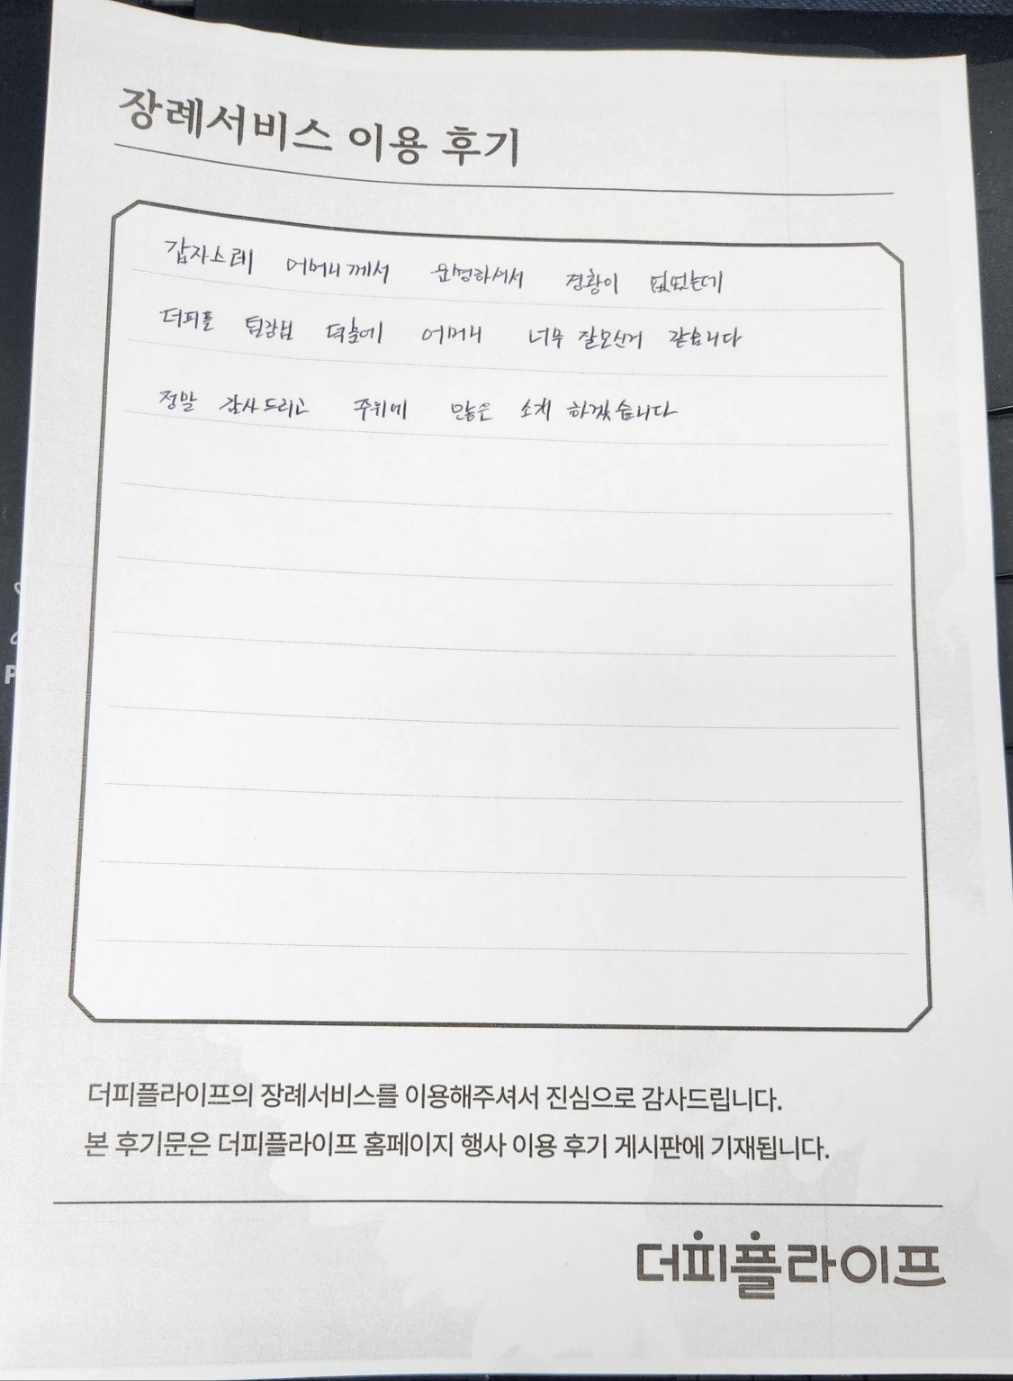 장례서비스 이용 후기
갑자스레 어머니께서 운명하셔서 경황이 없었는데
더피플 팀장님 덕분에 어머니 너무 잘모신거 같습니다
정말 감사드리고 주위에 많은 소개 하겠습니다
더피플라이프의 장례서비스를 이용해주셔서 진심으로 감사드립니다.
본 후기문은 더피플라이프 홈페이지 행사 이용 후기 게시판에 기재됩니다.
더피플라이프